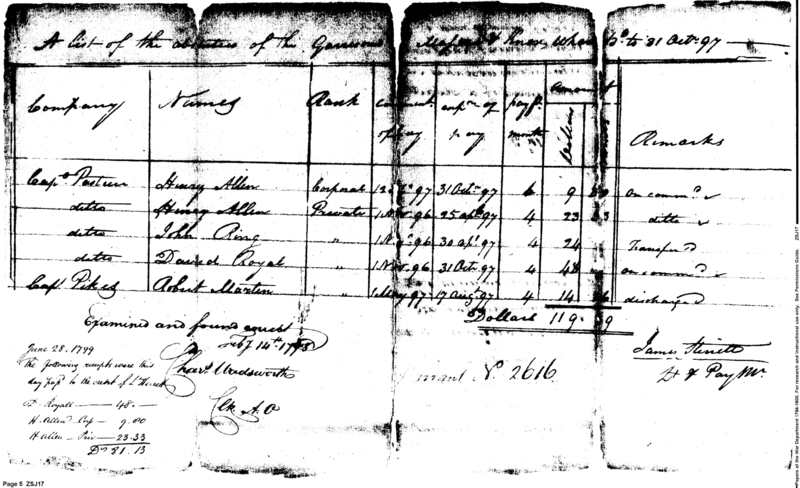 A list of the absentees of the Garrison Who p'd to 31 Octr 97
Company Names Rank of pay expn of pay pay pr month Amount Dollars Remarks
Capt Henry Allen Corporal 97 31 Octr 97 6 9 on commd
ditto Henry Allen Private 1 Nov. 96 25 apl 97 4 23 33 ditto
ditto John Ring " 96 30 apl 97 4 24 Transferd
ditto David Royal " 1 Nov. 96 31 Octr 97 4 48 on commd
Capt Pikes Robert Martin " 1 May 97 17 augt 97 4 14 discharged
Dollars 119.
Examined and found correct
Feby 14th 1798
Chas. Wadsworth
Clk A. O
June 28. 1799
The following receipts were this
day to the credit of
D Royall — 48. —
H. Allen Corp — 9.00
H Allen — Priv — 23.33
Ds 81.13
No. 2616
James
Lt & Pay Mr.
Page 5 ZSJ17
Papers of the War Department 1784-1800. For research and instructional use only. See Permissions Guide. ZSJ17